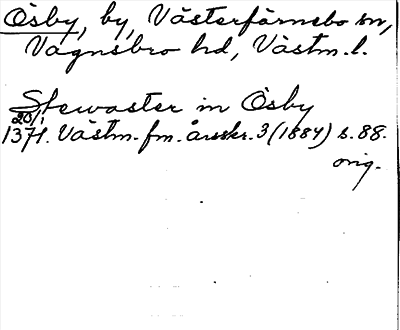 Ösby, by, Västerfärnebo sn,
Vagnsbro hd, Västm. l.
Stewaster in Ösby
20/1
1371. Västm. fm. årsskr. 3 (1884) s. 88.
orig.